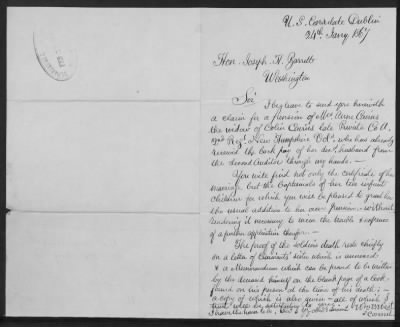 U. S. Consulate Dublin
24th Jany 1867
Hon. Joseph H. Barrett
Washington
Sir
I beg leave to send you herewith
a claim for a pension of Mrs Anne
the widow of Colin late Private Co A,
Regt New Hampshire Vols. who has already
received the back pay of her decd husband from
the Second Auditor through my hands. —
You will find not only the certificate of her
marriage, but the baptismals of her two infant
children for which you will be pleased to grant her
the usual addition to her own pension, without
rendering it necessary to incur the trouble & expense
of a further application therefor. —
The proof of the soldier's death rests chiefly
on a letter of which is annexed
& a Memorandum which can be proved to be written
by the deceased himself on the blank page of a book
found on his person at the time of his death; —
a copy of which is also given — all of which I
trust will be satisfactory to you.
I have the honor to be, Sir, Wm B West
Consul